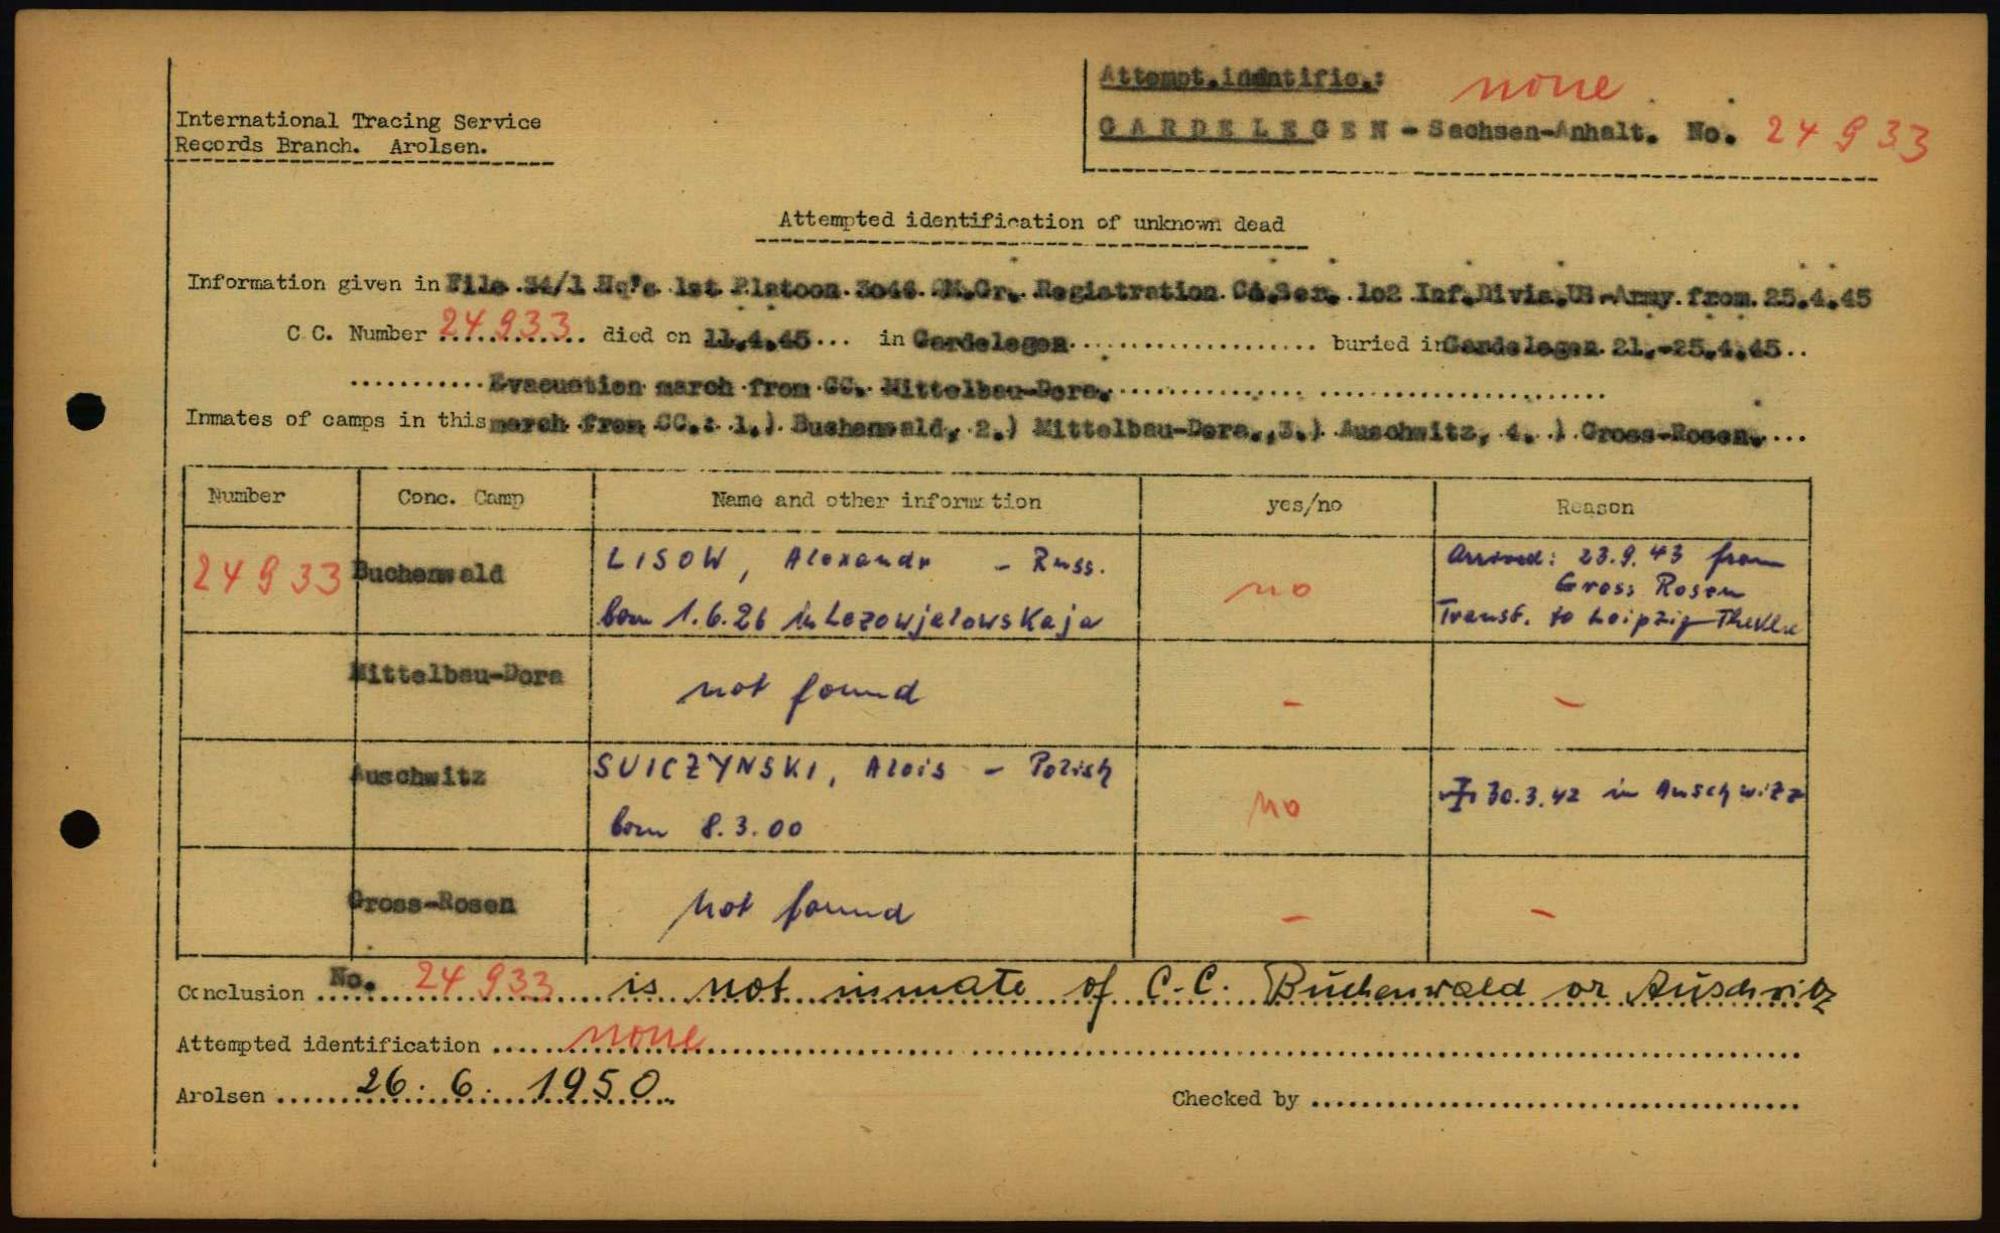 Attempt.identific.: none
International Tracing Service
Records Branch. Arolsen.
GARDELEGEN - Sachsen-Anhalt. No. 24933
Attempted identification of unknown dead
Information given in File 34/1 Hq's 1st Platoon 3046 QM.Gr. Registration Co.Ser. 1o2 Inf.Divis.US-Army from 25.4.45
C C. Number 24933 died on 11.4.45... in Gardelegen buried in Gardelegen 21.-25.4.45..
Evacuation march from CC. Mittelbau-Dora.
Inmates of camps in this march from CC.: 1.) Buchenwald, 2.) Mittelbau-Dora., 3.) Auschwitz, 4. ) Gross-Rosen....
Number Conc. Camp Name and other information yes/no Reason
24933 Buchenwald LISOW, Alexandr - Russ. no Arrived: 23.9.43 from
Gross Rosen
born 1.6.26 in Lozowjelowskaja Transf. to Leipzig-Thekla
Mittelbau-Dora not found - -
Auschwitz SUICZYNSKI, Alois - Polish no 30.3.42 in Auschwitz
born 8.3.00
Gross-Rosen not found - -
Conclusion No. 24933 is not inmate of C.C. Buchenwald or Auschwitz
Attempted identification none
Arolsen 26. 6. 1950. Checked by